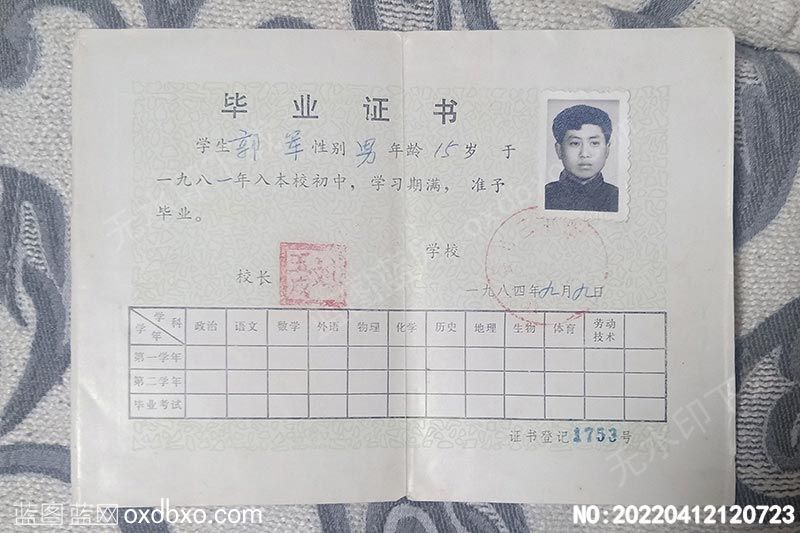 毕业证书
学生 郭军 性别 男 年龄 15 岁 于
一九八一年入本校初中，学习期满，准予
毕业。
学校
校长
一九八四年九月九日
学科
学年
政治 语文 数学 外语 物理 化学 历史 地理 生物 体育 劳动技术
第一学年
第二学年
毕业考试
证书登记1753号
蓝图蓝网oxdbxo.com
NO:20220412120723